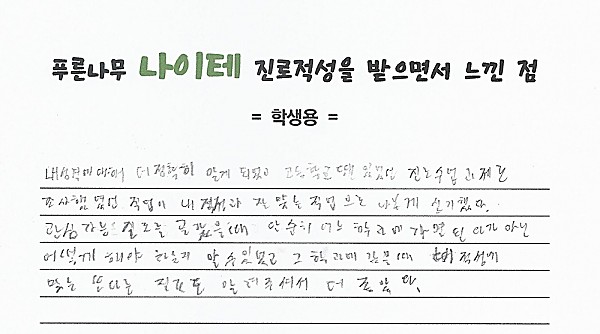 푸른나무 나이테 진로적성을 받으면서 느낀 점
= 학생용 =
내성격에 대해 더 정확히 알게 되었고 고등학교때 있었던 진로수업 과제로
조사했었던 직업이 내 적성과 잘 맞는 직업으로 나온게 신기했다.
관심가는 진로를 골랐을때 단순히 어느 학과에 가면 된다가 아닌
어떻게 해야 하는지 알 수 있었고 그 학과에 갔을때 적성에
맞는 또다른 진로도 알려주셔서 더 좋았다.